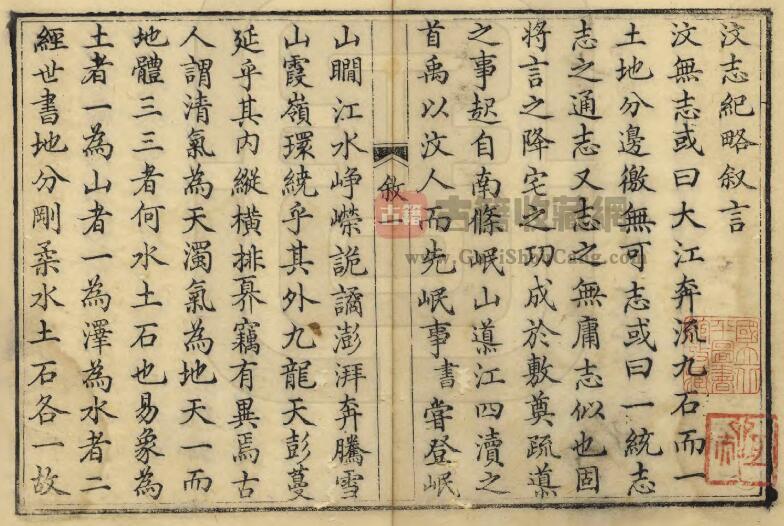 汶志紀略叙言
汶無志或曰大江奔流九石而一
土地分邊徼無可志或曰一統志
志之通志又志之無庸志似也固
將言之降宅之功成於敷奠疏導
之事起自南條岷山導江四瀆之
首禹以汶人而先岷事書嘗登岷
敘一
山瞷江水崢嶸詭譎澎湃奔騰雪
山霞嶺環繞乎其外九龍天彭蔓
延乎其内縱橫排奡竊有異焉古
人謂清氣為天濁氣為地天一而
地體三三者何水土石也易象為
土者一為山者一為澤為水者二
經世書地分剛柔水土石各一故
古籍
古籍收藏網
www.GuJiShouCang.com